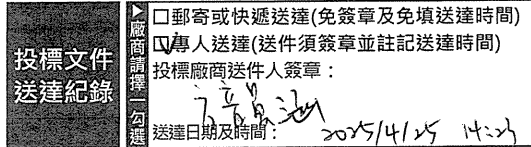 投標文件
送達紀錄
▶廠商請擇一勾選
□郵寄或快遞送達(免簽章及免填送達時間)
☑專人送達(送件須簽章並註記送達時間)
投標廠商送件人簽章：
送達日期及時間： 2025/4/25 14:23